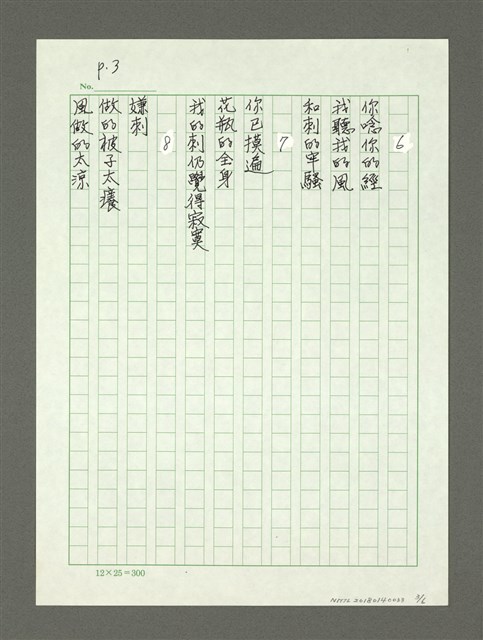 p.3
No.
6
你唸你的經
我聽我的風
和刺的牢騷
7
你已摸遍
花瓶的全身
我的刺仍覺得寂寞
8
嫌刺
做的被子太癢
風做的太涼
12×25=300
3/6